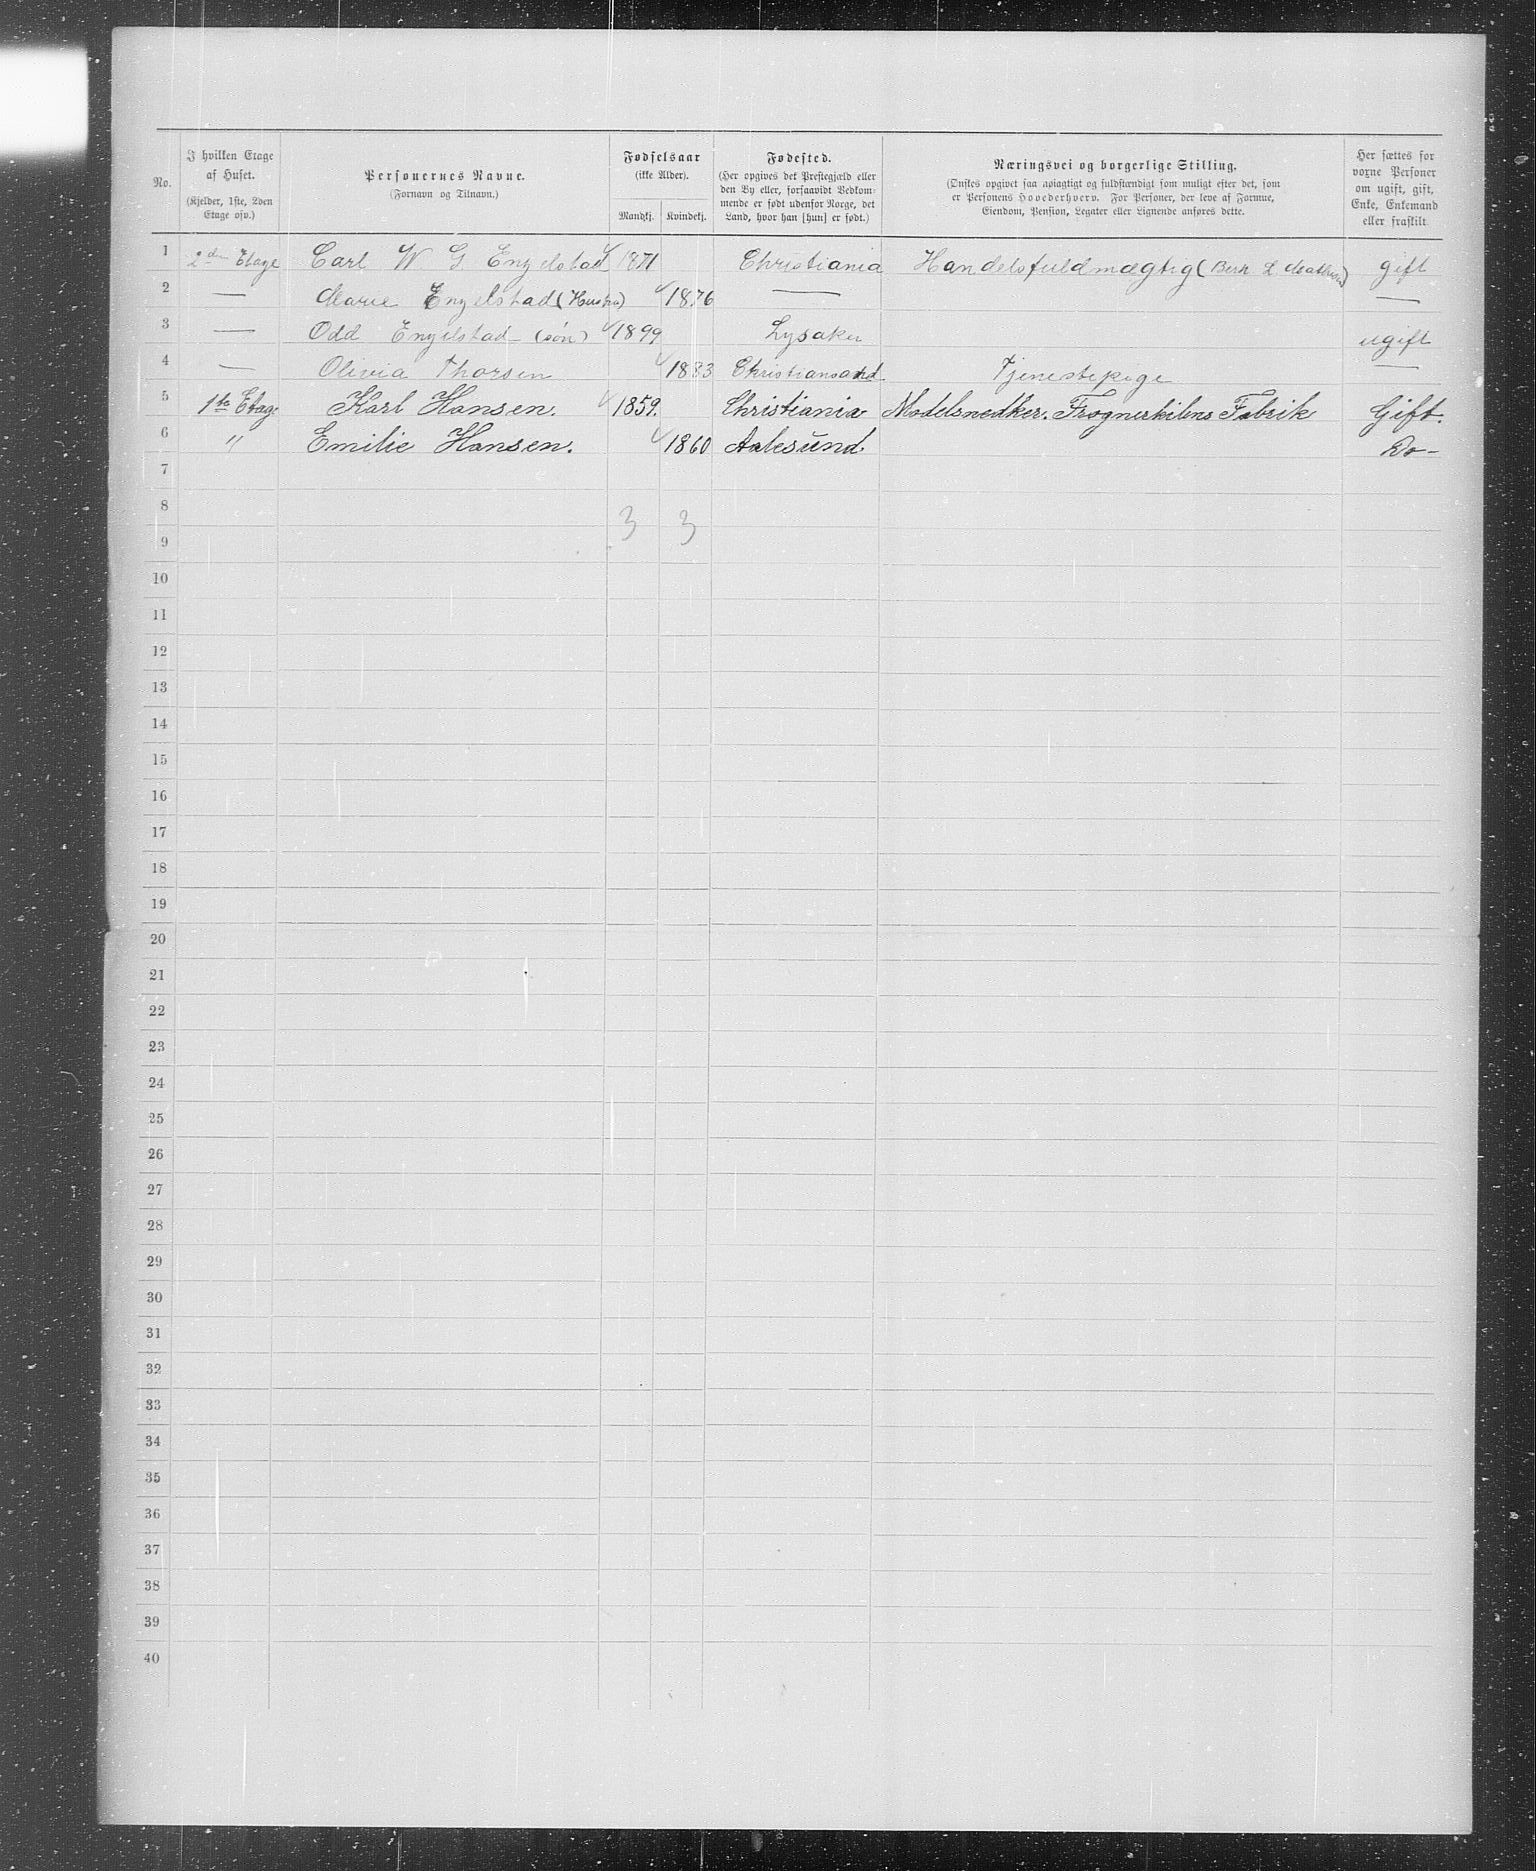 No.
I hvilken Etage af Huset.
(Kjelder, 1ste, 2den Etage osv.)
Personernes Navne.
(Fornavn og Tilnavn.)
Fødselsaar
(ikke Alder).
Mandkj.
Kvindekj.
Fødested.
(Her opgives det Prestegjæld eller
den By eller, forsaavidt Vedkom-
mende er født udenfor Norge, det
Land, hvor han [hun] er født.)
Næringsvei og borgerlige Stilling.
(Ønskes opgivet saa nøiagtigt og fuldstændigt som muligt efter det, som
er Personens Hovederhverv. For Personer, der leve af Formue,
Eiendom, Pension, Legater eller Lignende anføres dette.
Her sættes for
voxne Personer
om ugift, gift,
Enke, Enkemand
eller fraskilt.
1 2den Etage Carl W. G. Engelstad 1871 Christiania Handelsfuldmægtig ( gift
2 — Marie Engelstad (Hustru) 1876 — —
3 — Odd Engelstad (søn) 1899 Lysaker ugift
4 — Olivia Thorsen 1883 Christiansand Tjenestepige —
5 1ste Etag. Karl Hansen. 1859. Christiania Modelsnedker. Frognerkilens Fabrik Gift.
6 " Emilie Hansen. 1860 Aalesund. Do-
7
8
3 3
9
10
11
12
13
14
15
16
17
18
19
20
21
22
23
24
25
26
27
28
29
30
31
32
33
34
35
36
37
38
39
40